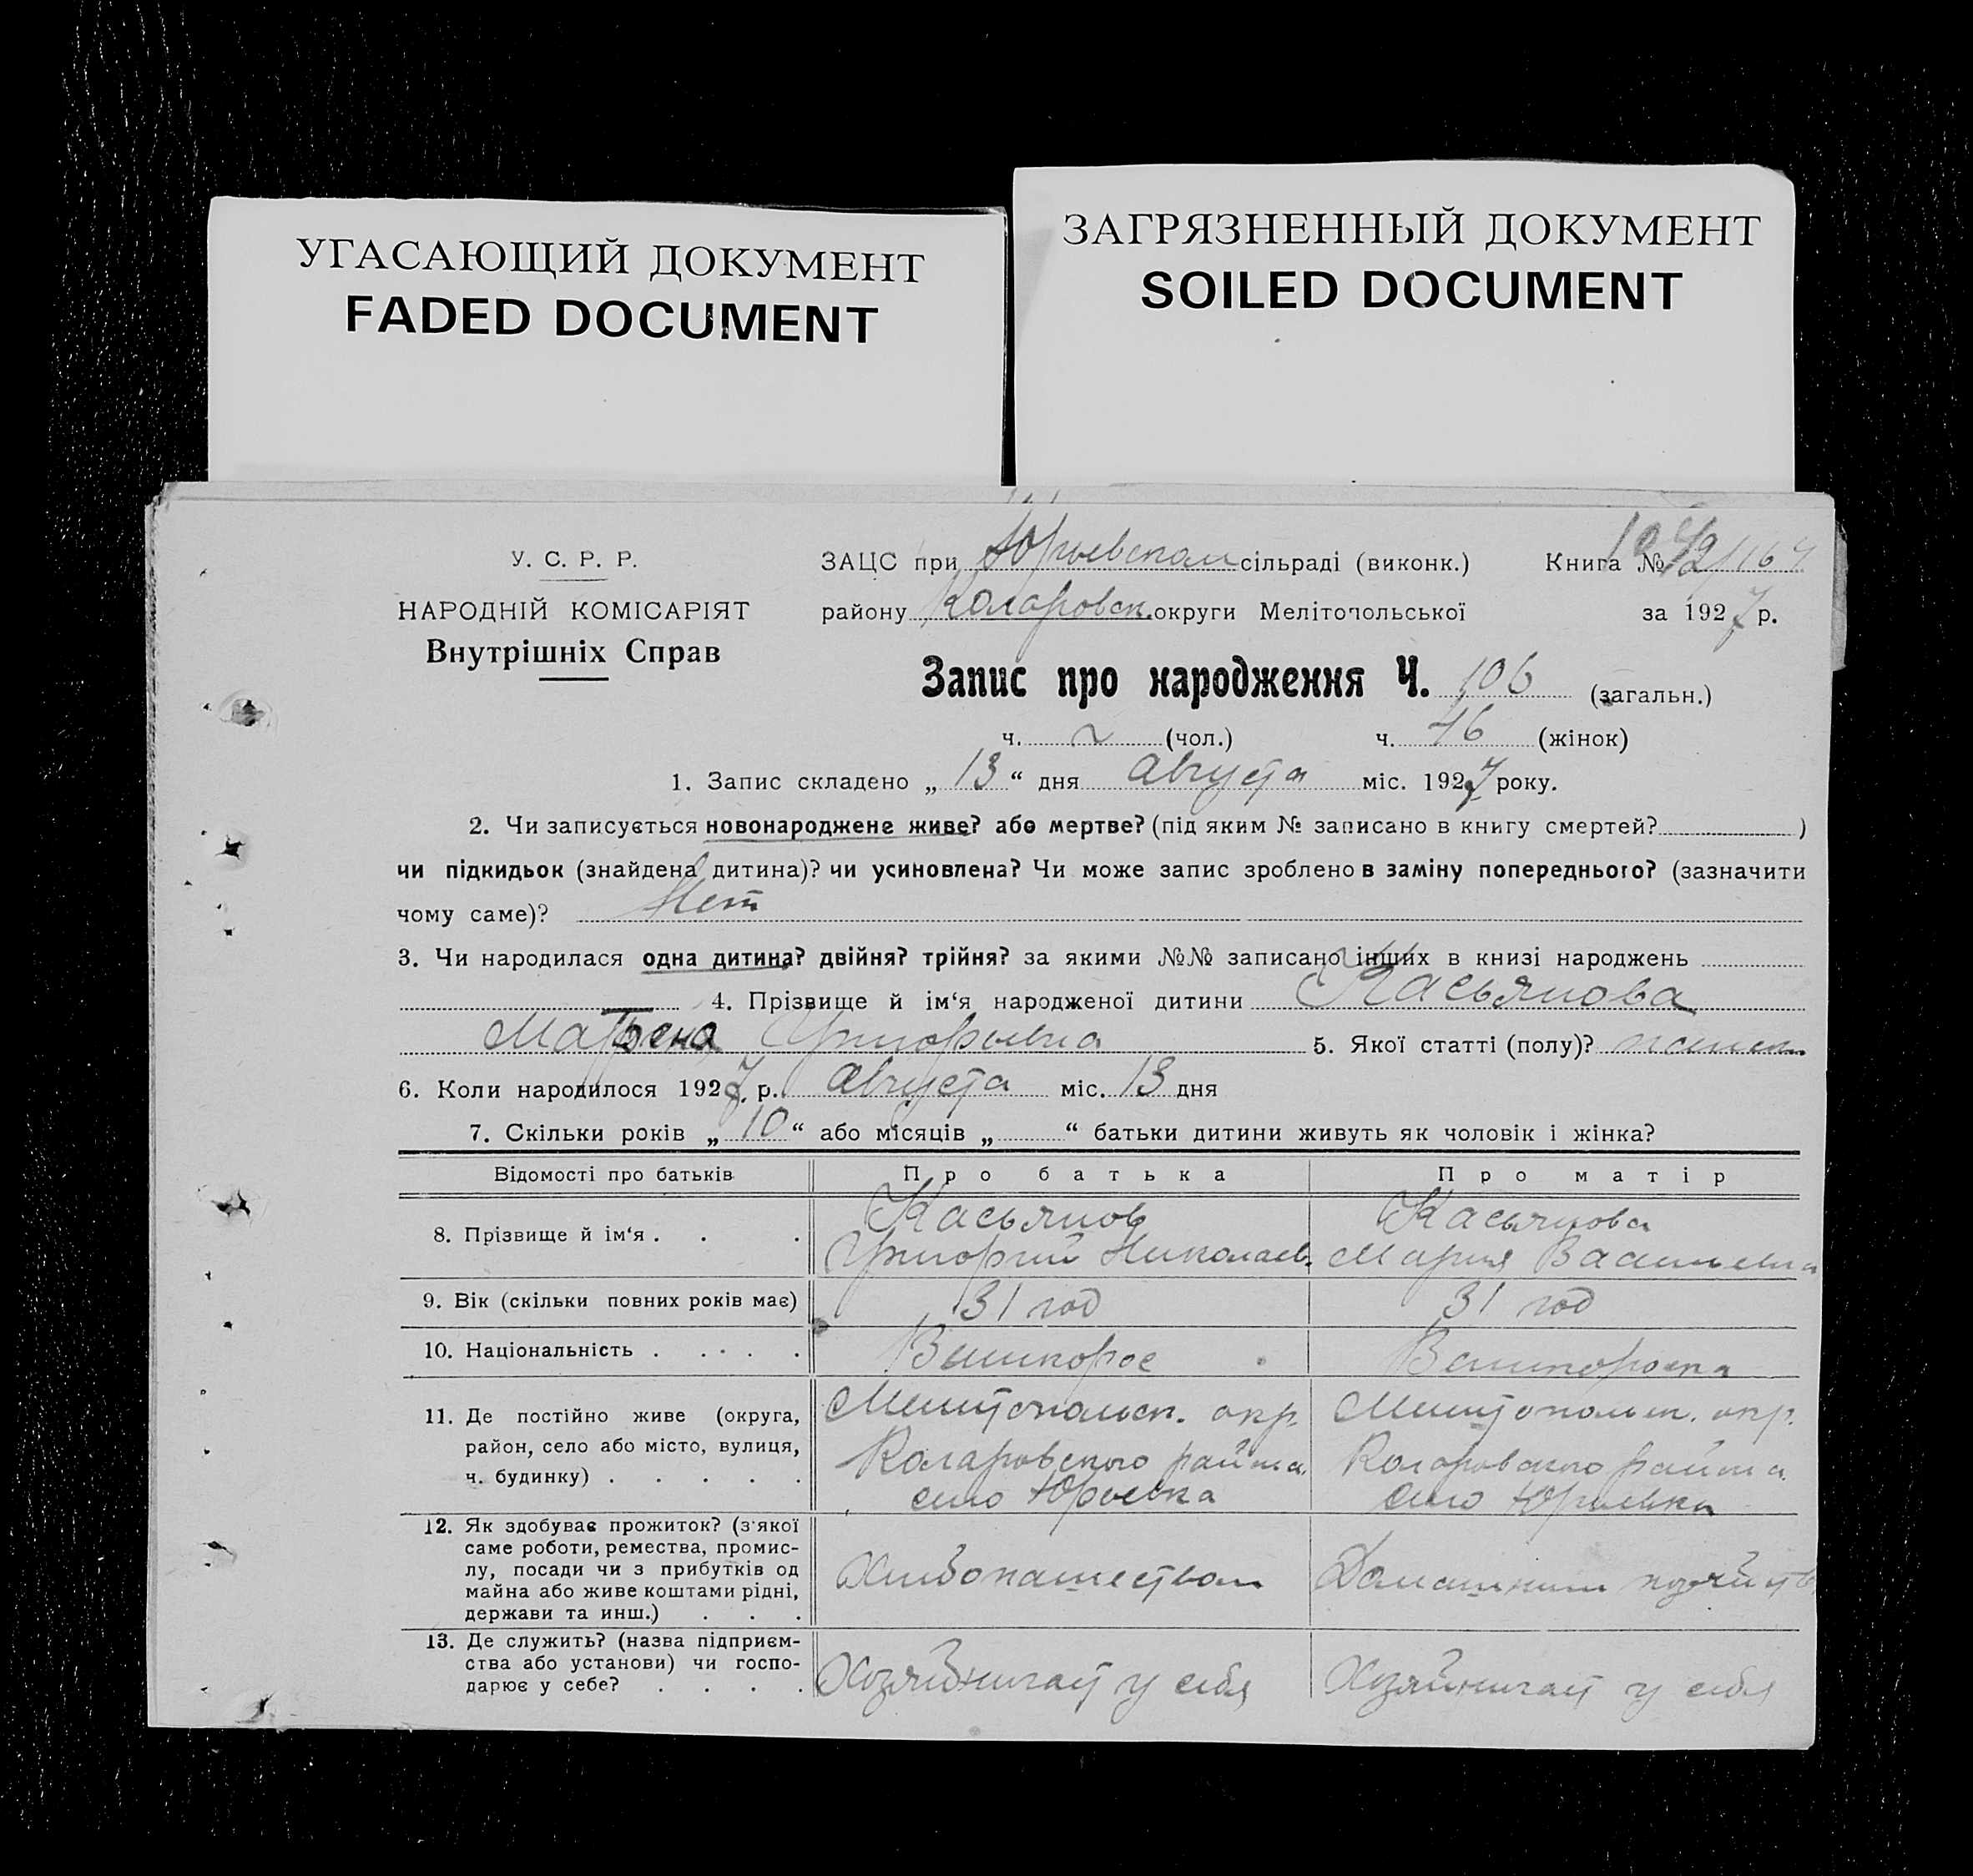 УГАСАЮЩИЙ ДОКУМЕНТ
FADED DOCUMENT
ЗАГРЯЗНЕННЫЙ ДОКУМЕНТ
SOILED DOCUMENT
У. С. Р. Р.
НАРОДНІЙ КОМІСАРІЯТ
Внутрішніх Справ
ЗАЦС при Юрьевском сільраді (виконк.) Книга №
району Коларовск. округи Мелітопольської за 1927 р.
Запис про народження Ч. 106 (загальн.)
ч. (чол.) ч. 46 (жінок)
1. Запис складено „ 13 “ дня Августа міс. 1927 року.
2. Чи записується новонароджене живе? або мертве? (під яким № записано в книгу смертей? )
чи підкидьок (знайдена дитина)? чи усиновлена? Чи може запис зроблено в заміну попереднього? (зазначити
чому саме)? Нет
3. Чи народилася одна дитина? двійня? трійня? за якими №№ записано інших в книзі народжень
4. Прізвище й ім‘я народженої дитини Касьянова
Матрена Григорьевна 5. Якої статті (полу)? женск.
6. Коли народилося 1927 р. Августа міс. 13 дня
7. Скільки років „ 10 “ або місяців „ “ батьки дитини живуть як чоловік і жінка?
Відомості про батьків Про батька Про матір
8. Прізвище й ім‘я . . . Касьянов Григорий Николаев. Касьянова Мария Васильевна
9. Вік (скільки повних років має) 31 год 31 год
10. Національність . . . . .
11. Де постійно живе (округа, район, село або місто, вулиця, ч. будинку) . . . . . Мелитопольск. окр. Коларовского района село Юрьевка Мелитопольск. окр. Коларовского района село Юрьевка
12. Як здобуває прожиток? (з якої саме роботи, ремества, промислу, посади чи з прибутків од майна або живе коштами рідні, держави та инш.) . . . Хлебопашеством Домашним хозяйств
13. Де служить? (назва підприємства або установи) чи господарює у себе? . . . . Хозяйничает у себя Хозяйничает у себя